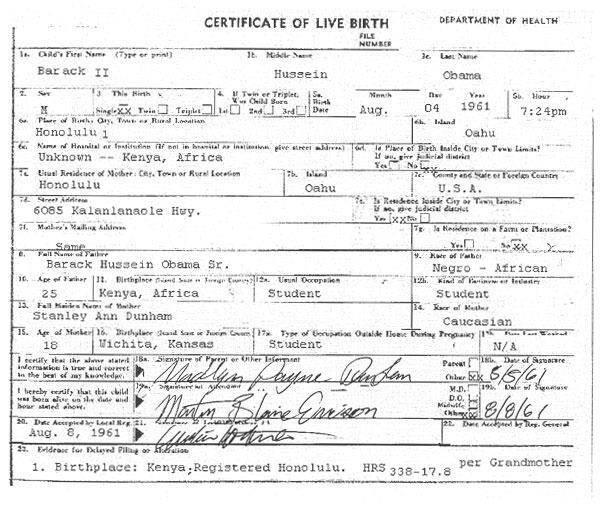 CERTIFICATE OF LIVE BIRTH
DEPARTMENT OF HEALTH
FILE NUMBER
1a. Child's First Name (Type or print) 1b. Middle Name 1c. Last Name
Barack II Hussein Obama
2. Sex 3. This Birth 4. If Twin or Triplet, Was Child Born 5a. Birth Date Month Day Year 5b. Hour
M Single XX Twin Triplet 1st 2nd 3rd Aug. 04 1961 7:24pm
6a. Place of Birth: City, Town or Rural Location 6b. Island
Honolulu 1 Oahu
6c. Name of Hospital or Institution (If not in hospital or institution, give street address) 6d. Is Place of Birth Inside City or Town Limits? If no, give judicial district
Unknown -- Kenya, Africa Yes No
7a. Usual Residence of Mother: City, Town or Rural Location 7b. Island 7c. County and State or Foreign Country
Honolulu Oahu U.S.A.
7d. Street Address 7e. Is Residence Inside City or Town Limits? If no, give judicial district
6085 Kalanlanaole Hwy. Yes XX No
7f. Mother's Mailing Address 7g. Is Residence on a Farm or Plantation?
Same Yes No XX
8. Full Name of Father 9. Race of Father
Barack Hussein Obama Sr. Negro - African
10. Age of Father 11. Birthplace (Island, State or Foreign Country) 12a. Usual Occupation 12b. Kind of Business or Industry
25 Kenya, Africa Student Student
13. Full Maiden Name of Mother 14. Race of Mother
Stanley Ann Dunham Caucasian
15. Age of Mother 16. Birthplace (Island, State or Foreign Country) 17a. Type of Occupation Outside Home During Pregnancy 17b. Date Last Worked
18 Wichita, Kansas Student N/A
I certify that the above stated information is true and correct to the best of my knowledge.
18a. Signature of Parent or Other Informant Parent Other XX 18b. Date of Signature
8/8/61
I hereby certify that this child was born alive on the date and hour stated above.
19a. Signature of Attendant M.D. D.O. Midwife Other XX 19b. Date of Signature
8/8/61
20. Date Accepted by Local Reg. 21. 22. Date Accepted by Reg. General
Aug. 8, 1961
23. Evidence for Delayed Filing or Alteration
1. Birthplace: Kenya;Registered Honolulu. HRS 338-17.8 per Grandmother